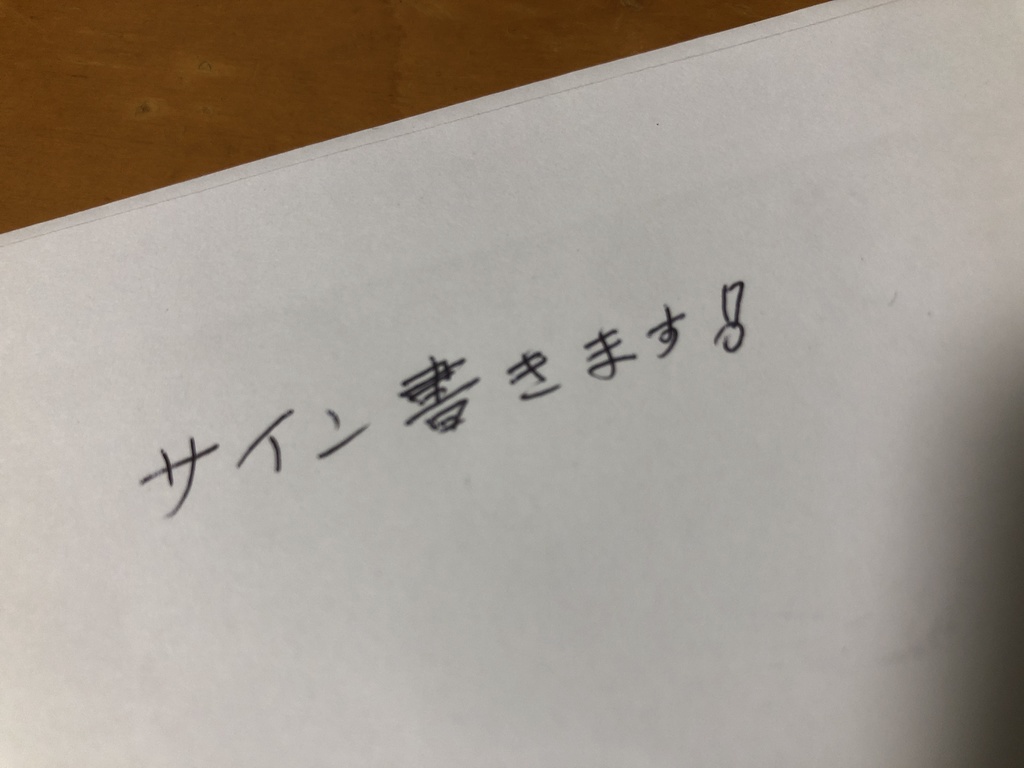 サイン書きます!